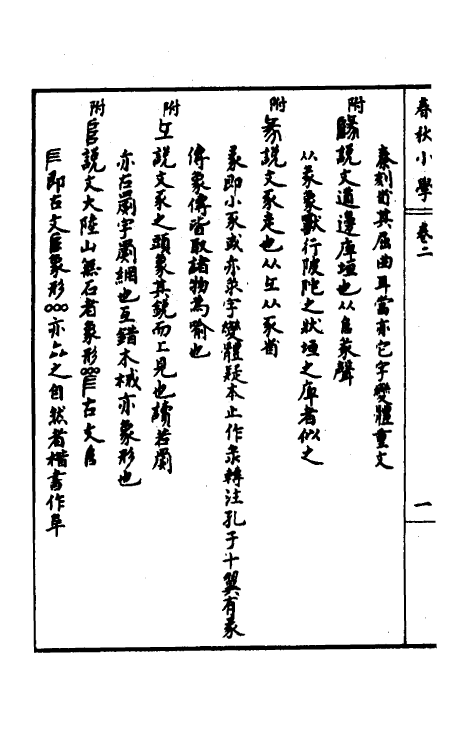 春秋小學 卷二 一
秦刻省其屈曲耳當亦它字變體重文
附 𨺔說文道邊庳垣也从𨸏彖聲
从彖象獸行陂陀之狀垣之庳者似之
附 彖說文豕走也从彑从豕省
彖即小豕或亦㣇字變體疑本止作㣇轉注孔子十翼有彖
傳象傳皆取諸物為喻也
附 彑說文豕之頭象其銳而上見也讀若罽
亦古罽字罽網也互錯木械亦象形也
附 𨸏說文大陸山無石者象形古文𨸏
即古文𨸏象形亦厽之自然者楷書作阜